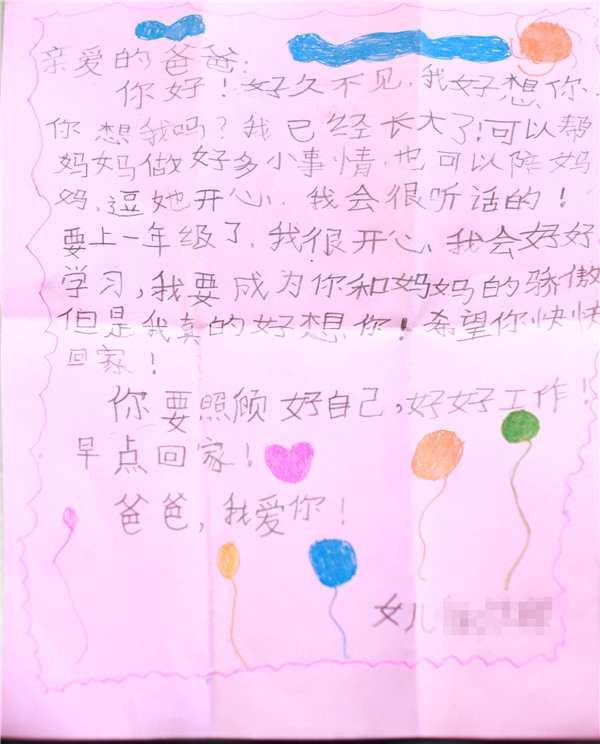 亲爱的爸爸：
你好！好久不见，我好想你，
你想我吗？我已经长大了！可以帮
妈妈做好多小事情，也可以陪妈
妈，逗她开心，我会很听话的！
要上一年级了，我很开心，我会好好
学习，我要成为你和妈妈的骄傲
但是我真的好想你！希望你快快
回家！
你要照顾好自己，好好工作！
早点回家！
爸爸，我爱你！
女儿